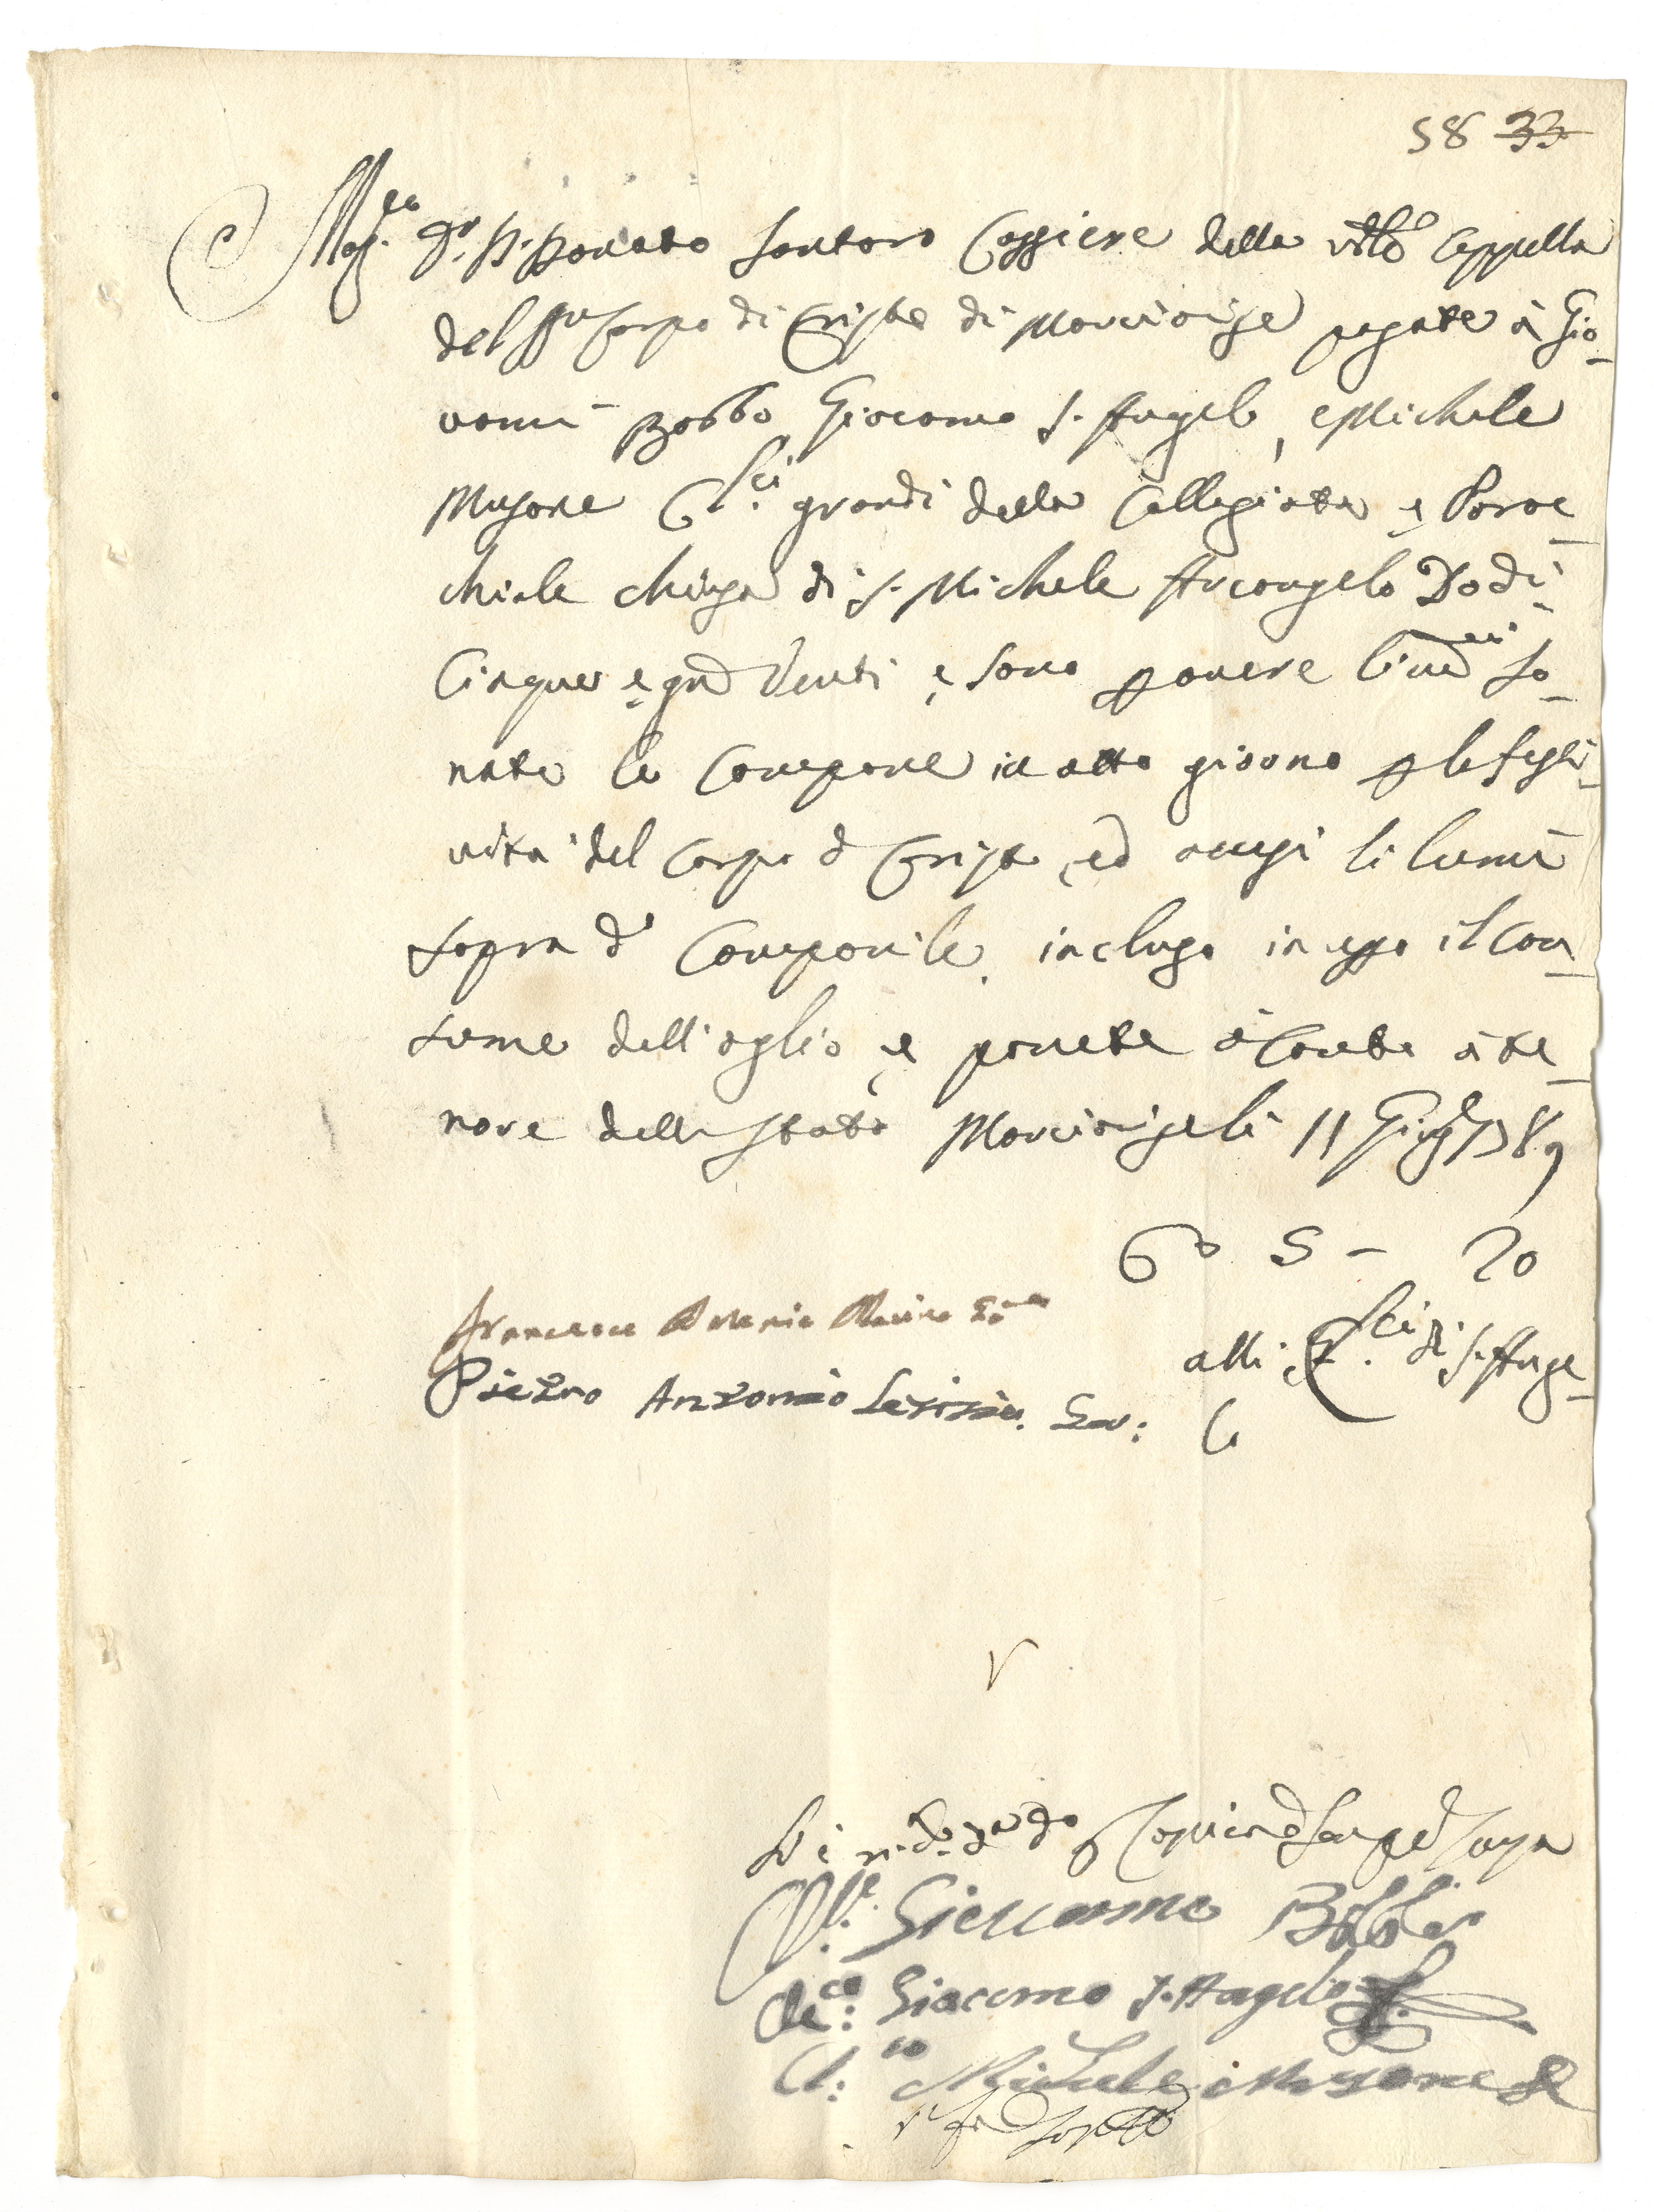 58 33
Mag.co D.r D. Donato Santoro Cassiere della Ven.le Cappella
del SS.mo Corpo di Cristo di Marcianise pagate à Gio-
vanni Bobbo, Giacomo S. Angelo, e Michele
Musone Cl.ci grandi della Collegiata e Paroc-
chiale chiesa di S. Michele Arcangelo Doti
Cinque e gra Venti, e sono p avere li med.mi so-
nate le Campane in otto giorno p la festi-
vità del Corpo di Cristo, ed accesi li lumi
sopra d.o Campanile, incluso in esso il con-
sumo dell'oglio, e ponete à Conto à te-
nore dello Stato Marcianise li 11 Giug.o 1789
Do 5 - 20
Francesco Antonio
Pietro Antonio Gov:
alli Cl.ci di S. Ange-
lo
Cl.co Giovanne Bobbo
Cl.co: Giacomo S. Angelo
Cl.co Michele Musone